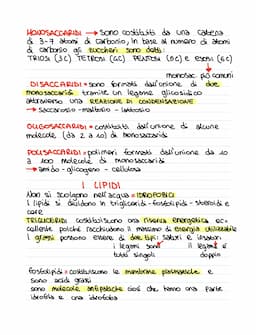 MONOSACCARIDI → sono costituiti da una catena
di 3-7 atomi di carbonio, in base al numero di atomi
di carbonio gli zuccheri sono detti:
TRIOSI (3C) TETROSI (4C) PENTOSI (5C) e ESOSI (6C)
monosac. più comuni
DISACCARIDI = sono formati dall'unione di due
monosaccaridi tramite un legame glicosidico
attraverso una REAZIONE DI CONDENSAZIONE
→ saccarosio - maltosio - lattosio
OLIGOSACCARIDI = costituiti dall'unione di alcune
molecole (da 2 a 10) di monosaccaridi
POLISACCARIDI = polimeri formati dall'unione da 10
a 100 molecole di monosaccaridi
→ amido - glicogeno - cellulosa
I LIPIDI
Non si sciolgono nell'acqua = IDROFOBICI
I lipidi si dividono in trigliceridi - fosfolipidi - steroidi e
cere
TRIGLICERIDI costituiscono una riserva energetica ec=
cellente poiché racchiudono il massimo di energia utilizzabile
I grassi possono essere di due tipi: saturi e insaturi
i legami sono il legame è
tutti singoli doppio
Fosfolipidi = costituiscono le membrane plasmatiche e
sono acidi grassi
sono molecole antipatiche cioè che hanno una parte
idrofila e una idrofoba